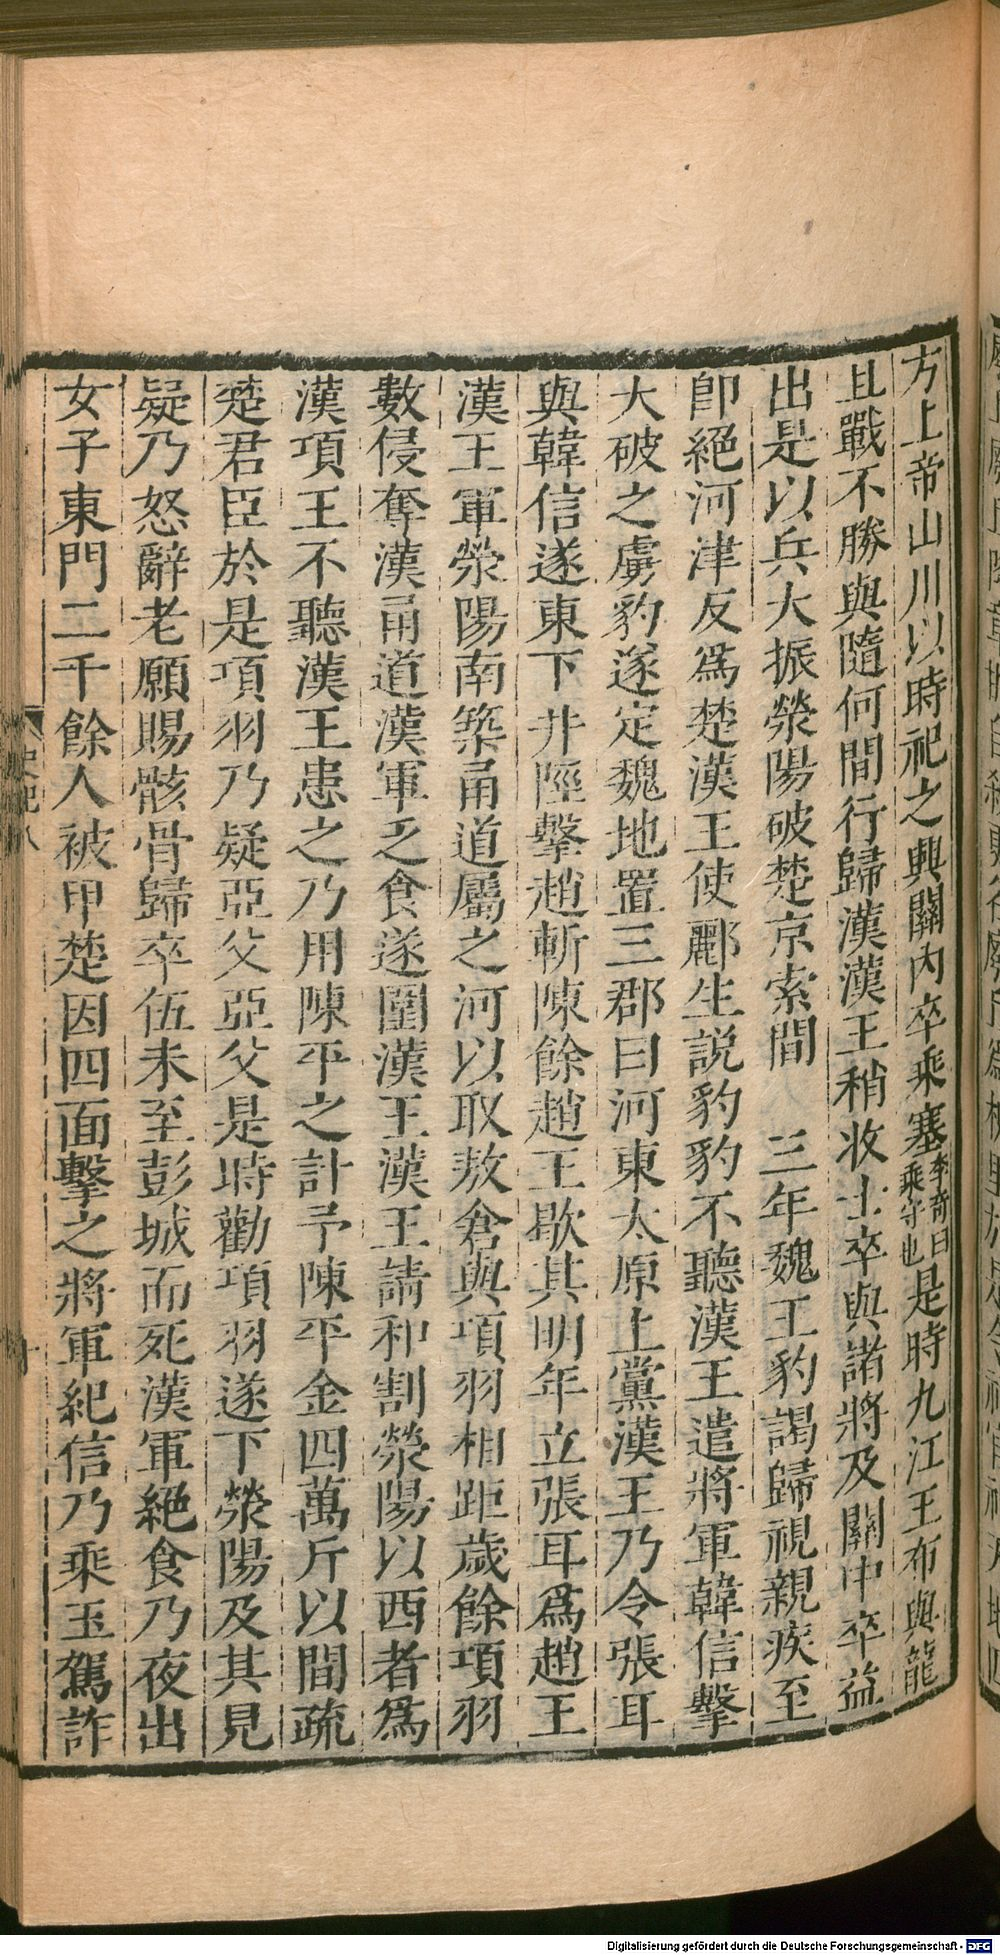 方上帝山川以時祀之興關內卒乘塞李奇曰乘守也是時九江王布與龍
且戰不勝與隨何間行歸漢漢王稍收士卒與諸將及關中卒益
出是以兵大振滎陽破楚京索間　三年魏王豹謁歸視親疾至
卽絕河津反爲楚漢王使酈生説豹豹不聽漢王遣將軍韓信擊
大破之虜豹遂定魏地置三郡曰河東太原上黨漢王乃令張耳
與韓信遂東下井陘擊趙斬陳餘趙王歇其明年立張耳爲趙王
漢王軍滎陽南築甬道屬之河以取敖倉與項羽相距歲餘項羽
數侵奪漢甬道漢軍乏食遂圍漢王漢王請和割滎陽以西者爲
漢項王不聽漢王患之乃用陳平之計予陳平金四萬斤以間疏
楚君臣於是項羽乃疑亞父亞父是時勸項羽遂下滎陽及其見
疑乃怒辭老願賜骸骨歸卒伍未至彭城而死漢軍絕食乃夜出
女子東門二千餘人被甲楚因四面擊之將軍紀信乃乘玉駕詐
史記八
十
Digitalisierung gefördert durch die Deutsche Forschungsgemeinschaft - DFG